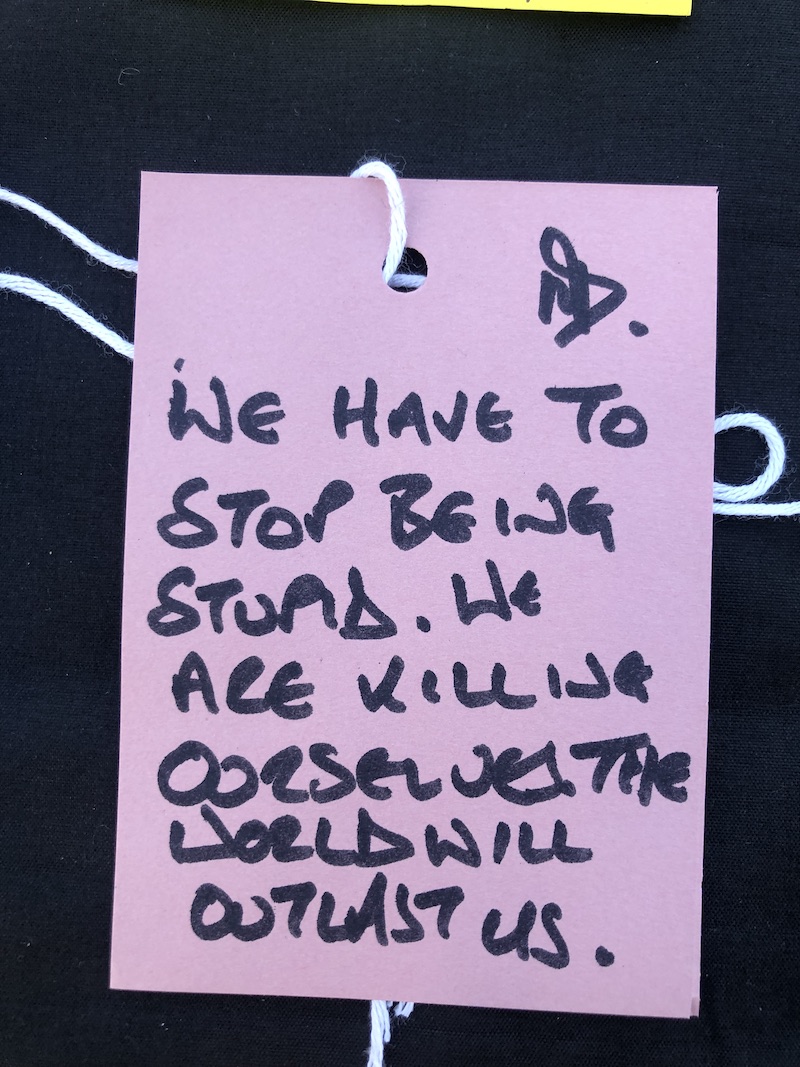 WE HAVE TO
STOP BEING
STUPID. WE
ARE KILLING
OURSELVES. THE
WORLD WILL
OUTLAST US.